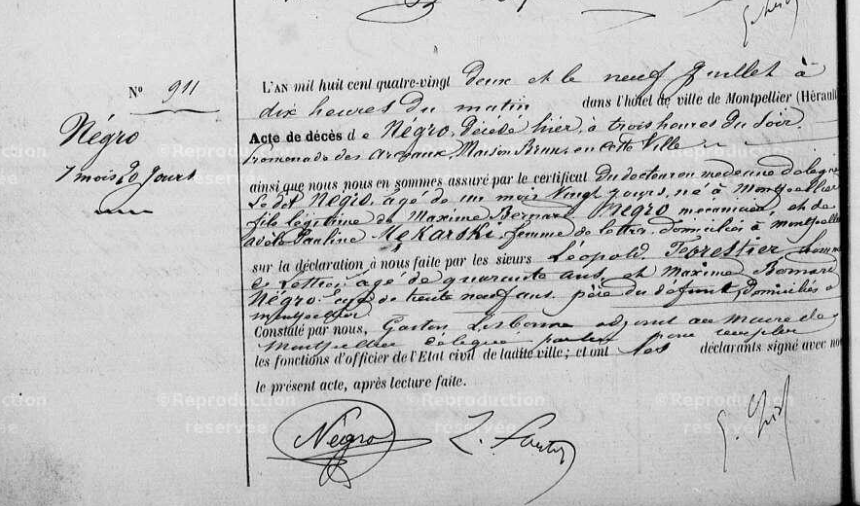 Nº 911
Négro
1 mois 20 jours
L'AN mil huit cent quatre-vingt deux et le neuf Juillet à
dix heures du matin dans l'hôtel de ville de Montpellier (Hérault
Acte de décès de Négro, Décédé hier, à trois heures du soir,
Promenade des Arceaux, Maison Brun, en cette Ville
ainsi que nous nous en sommes assuré par le certificat du docteur en médecine délégué
Le dit Négro, âgé de un mois Vingt jours, né à Montpellier
fils légitime de Maxime Bernard Négro mécanicien, et de
Adèle Pauline Mékarski, femme de lettres, domiciliés à Montpellier
sur la déclaration à nous faite par les sieurs Léopold Forestier homme
de Lettres, âgé de quarante ans, et Maxime Bernard
Négro, âgé de trente neuf ans, père du défunt, Domiciliés à
Montpellier
Constaté par nous, Gaston Lisbonne adjoint au Maire de
Montpellier délégué par lui pour remplir
les fonctions d'officier de l'Etat civil de ladite ville ; et ont les déclarants signé avec nou
le présent acte, après lecture faite.
Négro
©Reproduction réservée
©Reproduction réservée
©Reproduction réservée
©Reproduction réservée